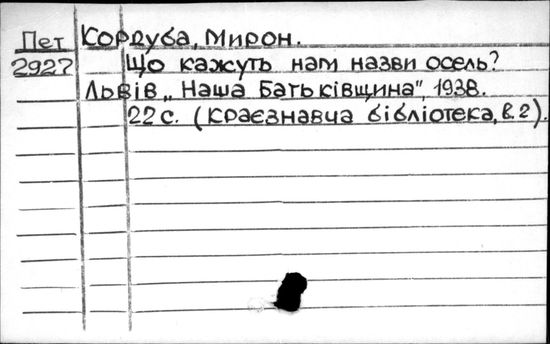 Пет Кордуба, Мирон.
2927 Що кажуть нам назви осель?
Львів „Наша Батьківщина", 1938.
22 с. (Краєзнавча бібліотека, в. 2).